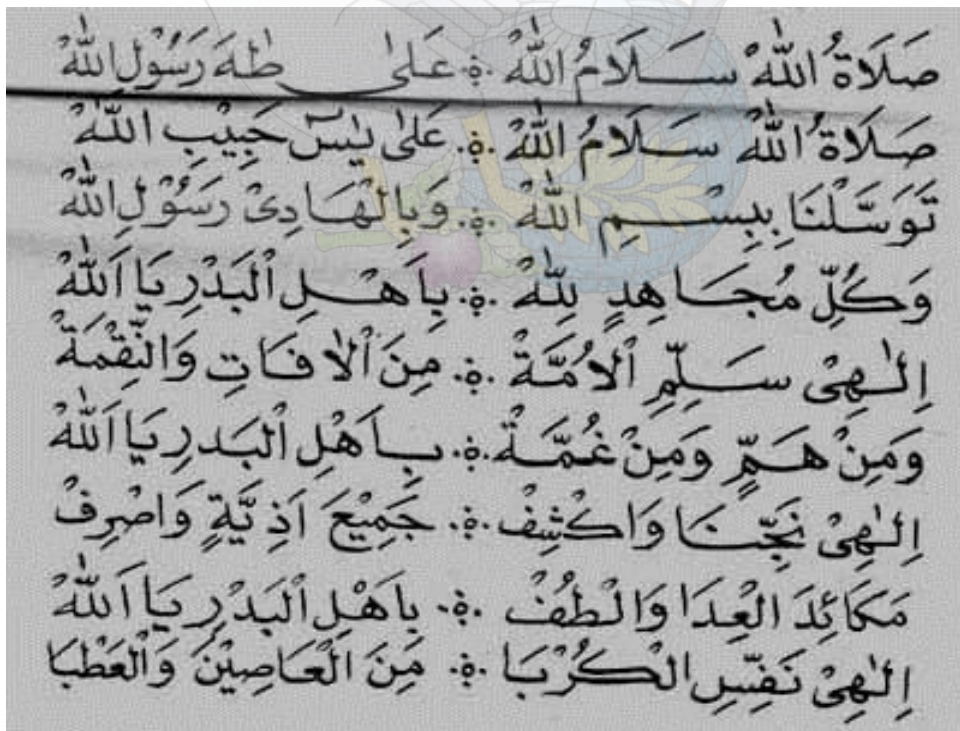 صَلَاةُ اللهْ سَلَامُ اللهْ ۞ عَلَى طٰهَ رَسُوْلِ اللهْ
صَلَاةُ اللهْ سَلَامُ اللهْ ۞ عَلَى يٰسٓ حَبِيْبِ اللهْ
تَوَسَّلْنَا بِبِسْمِ اللهْ ۞ وَبِالْهَادِىْ رَسُوْلِ اللهْ
وَكُلِّ مُجَاهِدٍ لِلّٰهْ ۞ بِاَهْلِ الْبَدْرِ يَا اَللهْ
اِلٰهِىْ سَلِّمِ الْاُمَّةْ ۞ مِنَ الْاٰفَاتِ وَالنِّقْمَةْ
وَمِنْ هَمٍّ وَمِنْ غُمَّةْ ۞ بِاَهْلِ الْبَدْرِ يَا اَللهْ
اِلٰهِىْ نَجِّنَا وَاكْشِفْ ۞ جَمِيْعَ اَذِيَّةٍ وَاصْرِفْ
مَكَائِدَ الْعِدَا وَالْطُفْ ۞ بِاَهْلِ الْبَدْرِ يَا اَللهْ
اِلٰهِىْ نَفِّسِ الْكُرْبَا ۞ مِنَ الْعَاصِيْنَ وَالْعَطْبَا